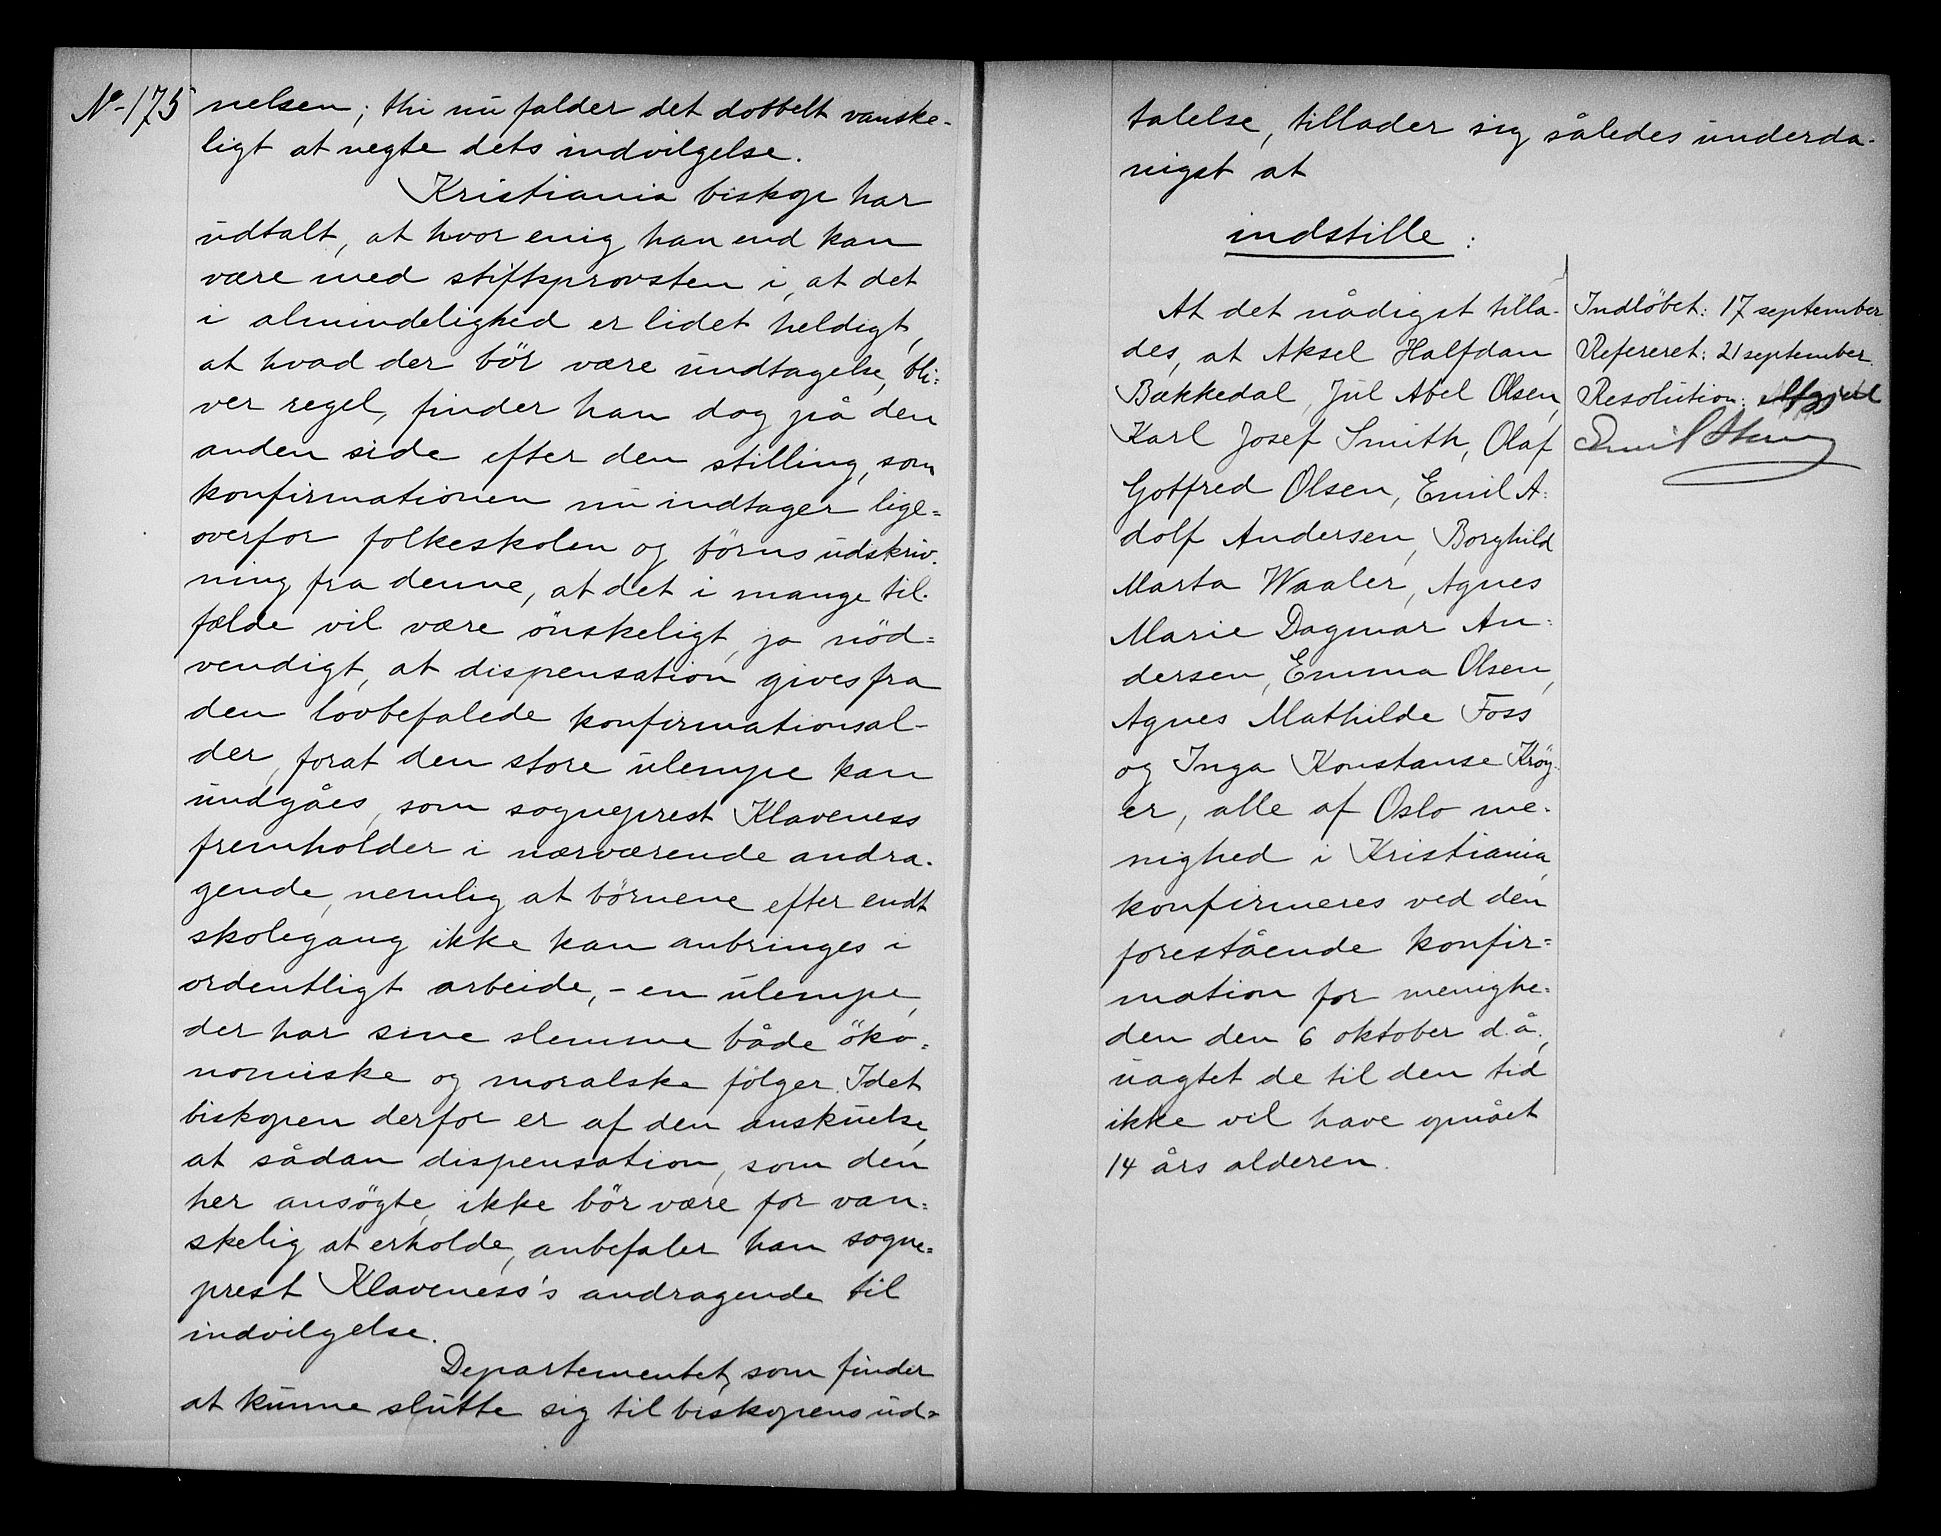 No 175
nelsen; thi nu falder det dobbelt vanske-
ligt at negte dets indvilgelse.
Kristiania biskop har
udtalt, at hvor enig han end kan
være med stiftsprovsten i, at det
i almindelighed er lidet heldigt,
at hvad der bör være undtagelse, bli-
ver regel, finder han dog på den
anden side efter den stilling, som
konfirmationen nu indtager lige-
overfor folkeskolen og börns udskriv-
ning fra denne, at det i mange til-
fælde vil være önskeligt, ja nöd-
vendigt, at dispensation gives fra
den lovbefalede konfirmationsal-
der, forat den store ulempe kan
undgåes, som sogneprest Klaveness
fremholder i nærværende andra-
gende, nemlig at börnene efter endt
skolegang ikke kan anbringes i
ordentligt arbeide, - en ulempe,
der har sine slemme både öko-
nomiske og moralske fölger. Idet
biskopen derfor er af den anskuelse,
at sådan dispensation, som den
her ansögte, ikke bör være for van-
skelig at erholde, anbefaler han sogne-
prest Klaveness's andragende til
indvilgelse.
Departementet, som finder
at kunne slutte sig til biskopens ud-
talelse, tillader sig således underda-
nigst at
indstille:
At det nådigst tilla-
des, at Aksel Halfdan
Bækkedal, Jul Abel Olsen,
Karl Josef Smith, Olaf
Gotfred Olsen, Emil A-
dolf Andersen, Borghild
Marta Waaler, Agnes
Marie Dagmar An-
dersen, Emma Olsen,
Agnes Mathilde Foss
og Inga Konstanse Kröy-
er, alle af Oslo me-
nighed i Kristiania,
konfirmeres ved den
forestående konfir-
mation for menighe-
den den 6 oktober d.å.,
uagtet de til den tid
ikke vil have opnået
14 års alderen.
Indlöbet: 17 september.
Refereret: 21 september.
Resolution:
Emil Stang